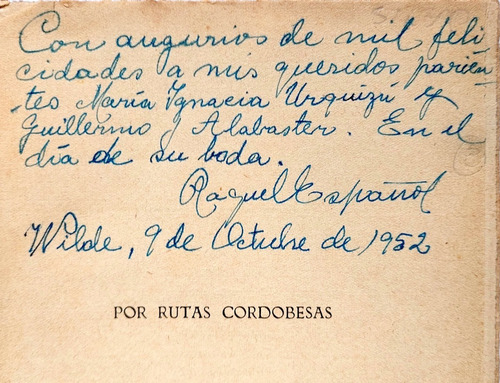 Con augurios de mil feli
cidades a mis queridos parien
-tes María Ignacia Urquizú y
Guillermo Alabaster. En el
día de su boda.
Raquel Español
Wilde, 9 de Octubre de 1952
POR RUTAS CORDOBESAS